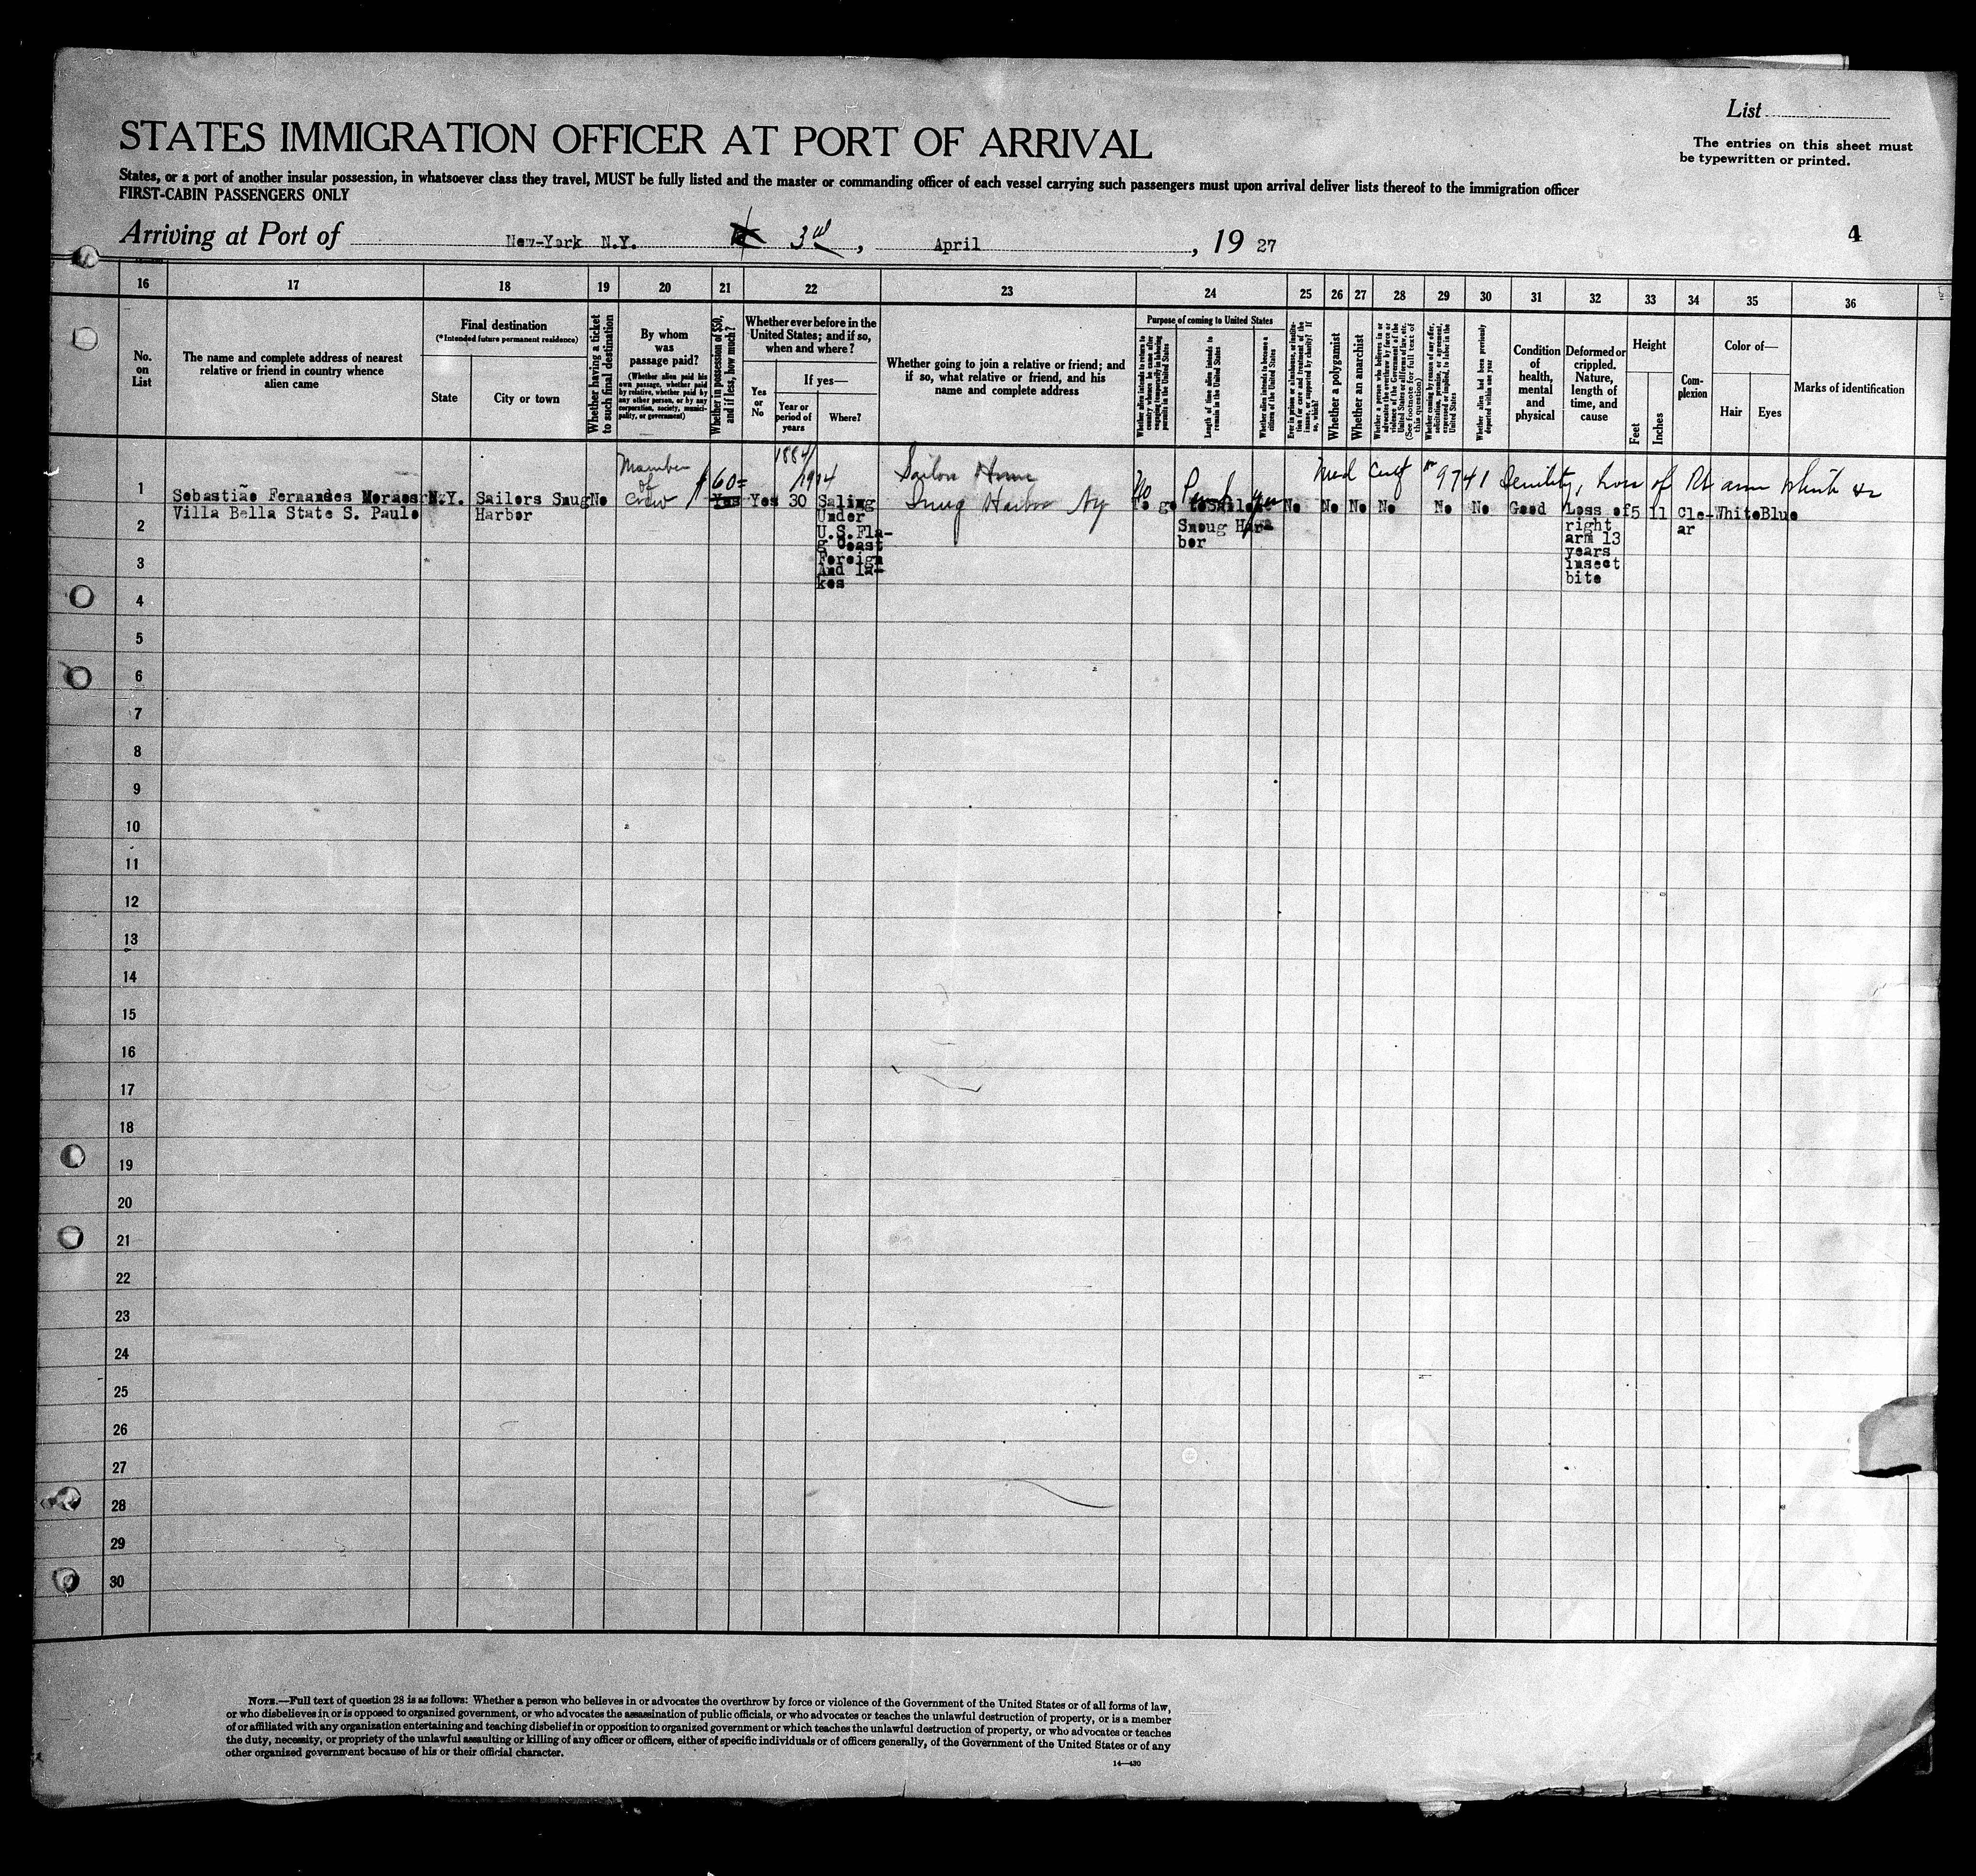 List
The entries on this sheet must
be typewritten or printed.
STATES IMMIGRATION OFFICER AT PORT OF ARRIVAL
States, or a port of another insular possession, in whatsoever class they travel, MUST be fully listed and the master or commanding officer of each vessel carrying such passengers must upon arrival deliver lists thereof to the immigration officer
FIRST-CABIN PASSENGERS ONLY
Arriving at Port of New-York N.Y. 3rd, April, 1927
4
16 17 18 19 20 21 22 23 24 25 26 27 28 29 30 31 32 33 34 35 36
No.
on
List
The name and complete address of nearest
relative or friend in country whence
alien came
Final destination
(*Intended future permanent residence)
State
City or town
Whether having a ticket
to such final destination
By whom
was
passage paid?
(Whether alien paid his
own passage, whether paid
by relative, whether paid by
any other person, or by any
corporation, society, munici-
pality, or government)
Whether in possession of $50,
and if less, how much?
Whether ever before in the
United States; and if so,
when and where?
Yes
or
No
If yes—
Year or
period of
years
Where?
Whether going to join a relative or friend; and
if so, what relative or friend, and his
name and complete address
Purpose of coming to United States
Whether alien intends to return to
country whence he came after
engaging temporarily in laboring
pursuits in the United States
Length of time alien intends to
remain in the United States
Whether alien intends to become a
citizen of the United States
Ever in prison or almshouse, or institu-
tion for care and treatment of the
insane, or supported by charity? If
so, which?
Whether a polygamist
Whether an anarchist
Whether a person who believes in or
advocates the overthrow by force or
violence of the Government of the
United States or all forms of law, etc.
(See footnote for full text of
this question)
Whether coming by reason of any offer,
solicitation, promise, or agreement,
expressed or implied, to labor in the
United States
Whether alien had been previously
deported within one year
Condition
of
health,
mental
and
physical
Deformed or
crippled.
Nature,
length of
time, and
cause
Height
Feet
Inches
Com-
plexion
Color of—
Hair
Eyes
Marks of identification
1
Sebastião Fernandes Moraes
Villa Bella State S. Paulo
N.Y.
Sailors Snug
Harbor
No
Member
of
Crew
$60=
Yes
Yes
1884/
1914
30
Saling
Under
U.S.Fla-
g Coast
Foreign
And la-
kes
Sailors Home
Snug Harbor Ny
No
To go to Sailors
Snoug Har-
bor
yes
Med Cert 9741 Senility, loss of Rt arm
No No No No No No Good
Loss of
right
arm 13
years
insect
bite
5 11
Cle-
ar
White
Blue
2
3
4
5
6
7
8
9
10
11
12
13
14
15
16
17
18
19
20
21
22
23
24
25
26
27
28
29
30
NOTE.—Full text of question 28 is as follows: Whether a person who believes in or advocates the overthrow by force or violence of the Government of the United States or of all forms of law,
or who disbelieves in or is opposed to organized government, or who advocates the assassination of public officials, or who advocates or teaches the unlawful destruction of property, or is a member
of or affiliated with any organization entertaining and teaching disbelief in or opposition to organized government or which teaches the unlawful destruction of property, or who advocates or teaches
the duty, necessity, or propriety of the unlawful assaulting or killing of any officer or officers, either of specific individuals or of officers generally, of the Government of the United States or of any
other organized government because of his or their official character.
14—430